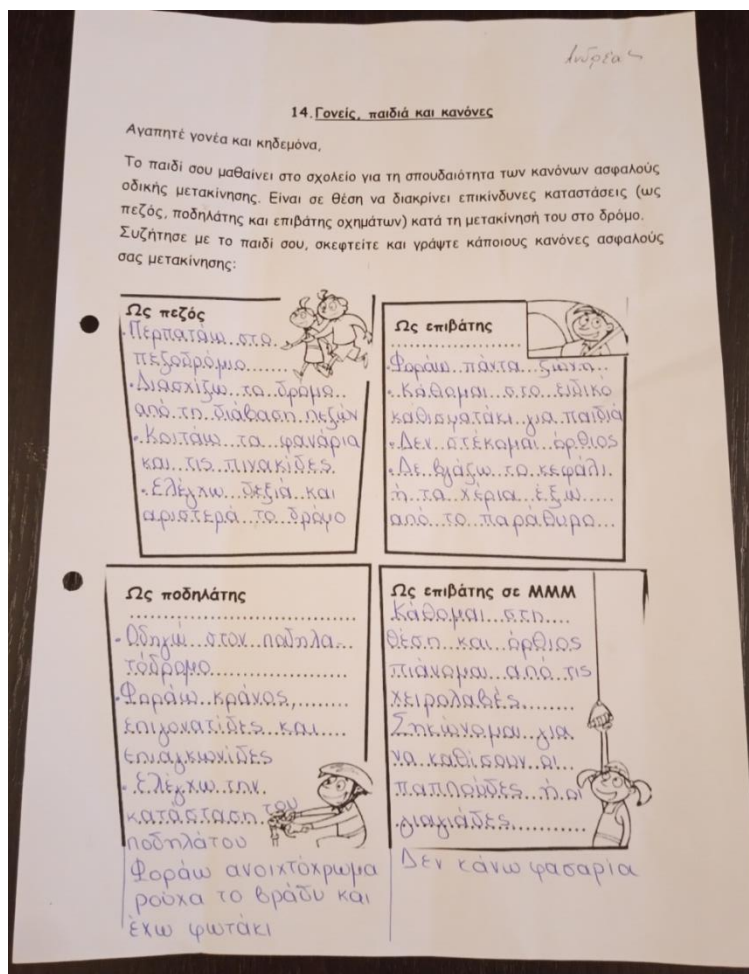 Ανδρέας
14. Γονείς, παιδιά και κανόνες
Αγαπητέ γονέα και κηδεμόνα,
Το παιδί σου μαθαίνει στο σχολείο για τη σπουδαιότητα των κανόνων ασφαλούς
οδικής μετακίνησης. Είναι σε θέση να διακρίνει επικίνδυνες καταστάσεις (ως
πεζός, ποδηλάτης και επιβάτης οχημάτων) κατά τη μετακίνησή του στο δρόμο.
Συζήτησε με το παιδί σου, σκεφτείτε και γράψτε κάποιους κανόνες ασφαλούς
σας μετακίνησης:
Ως πεζός
Περπατάω στο
πεζοδρόμιο
Διασχίζω το δρόμο
από τη διάβαση πεζών
Κοιτάω τα φανάρια
και τις πινακίδες
Ελέγχω δεξιά και
αριστερά το δρόμο
Ως επιβάτης
Φοράω πάντα ζώνη
Κάθομαι στο ειδικό
καθισματάκι για παιδιά
Δεν στέκομαι όρθιος
Δε βγάζω το κεφάλι
ή τα χέρια έξω
από το παράθυρο
Ως ποδηλάτης
Οδηγώ στον ποδηλα
τόδρομο
Φοράω κράνος,
επιγονατίδες και
επιαγκωνίδες
Ελέγχω την
κατάσταση του
ποδηλάτου
Φοράω ανοιχτόχρωμα
ρούχα το βράδυ και
έχω φωτάκι
Ως επιβάτης σε ΜΜΜ
Κάθομαι στη
θέση και όρθιος
πιάνομαι από τις
χειρολαβές
Σηκώνομαι για
να καθίσουν οι
παππούδες ή οι
γιαγιάδες
Δεν κάνω φασαρία